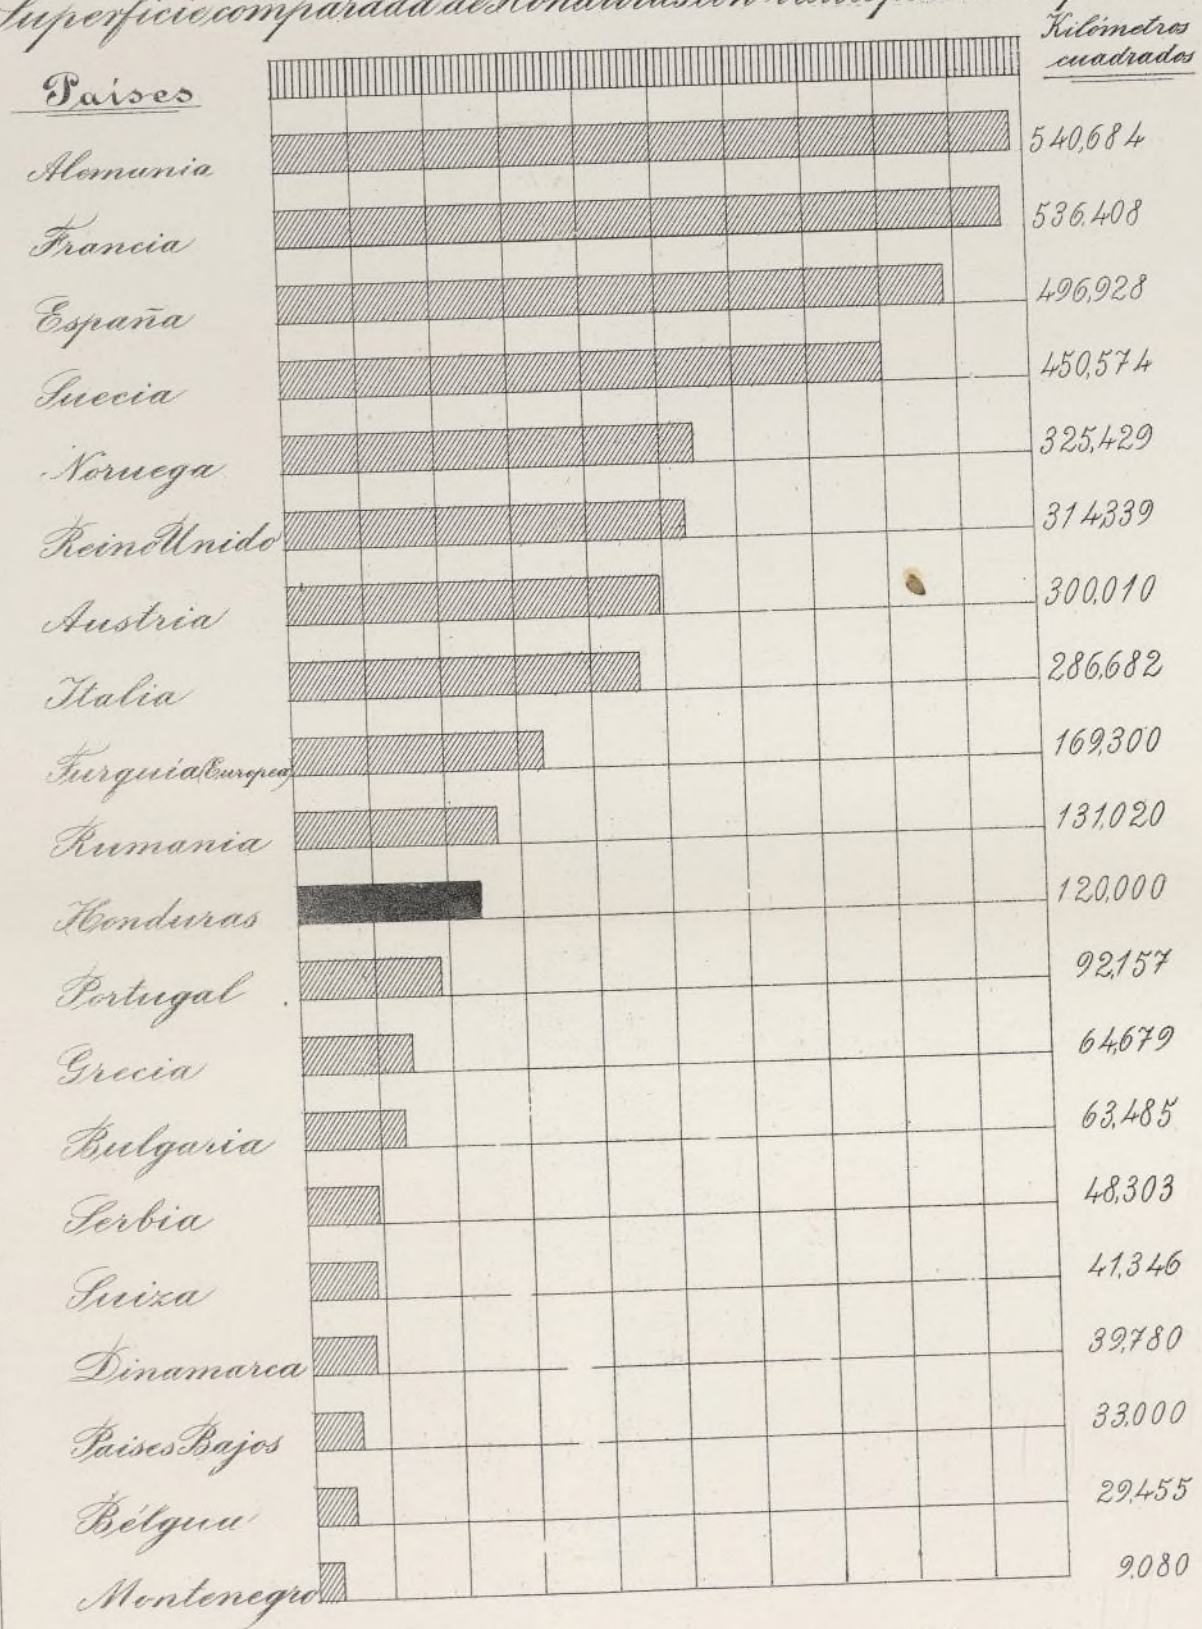 Superficie comparada de Honduras con
Kilómetros
cuadrados
Países
Alemania 540,684
Francia 536.408
España 496,928
Suecia 450,574
Noruega 325,429
Reino Unido 314,339
Austria 300,010
Italia 286,682
Turquía (Europea) 169,300
Rumania 131,020
Honduras 120,000
Portugal 92,157
Grecia 64,679
Bulgaria 63,485
Serbia 48,303
Suiza 41,346
Dinamarca 39,780
Paises Bajos 33,000
Bélgica 29,455
Montenegro 9,080